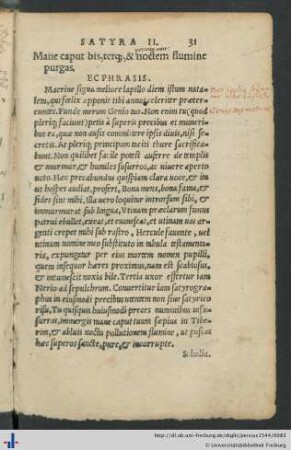 SATYRA II. 31
Mane caput bis, terq́;, & noctem flumine
purgas.
ECPHRASIS.
Macrine signa meliore lapillo diem istum nata-
lem, qui fœlix apponit tibi annos celeriter præter-
euntes. Funde merum Genio tuo. Non enim tu (quod
pleriq; faciunt) petis à superis preciosa et muneri-
bus ea, quæ non ausis committere ipsis diuis, nisi se-
cretis. At pleriq; principum taciti thure sacrifica-
bunt. Non quilibet facile potest auferre de templis
murmur, & humiles susurros, ac uiuere aperto
uoto. Hæc precabundus quispiam clara uoce, & in
ut hospes audiat, profert, Bona mens, bona fama, &
fides sint mihi, Illa uero loquitur introrsum sibi, &
immurmurat sub lingua, Vtinam præclarum funus
patrui ebullet, & ut utinam uas ar-
genti crepet mihi sub rastro, Hercule fauente, uel
utinam nomine meo substituto in tabula testamenta-
ria, expungatur per eius mortem nomen pupilli,
quem insequor hæres proximus, nam est scabiosus,
& intumescit noxia bile. Tertia uxor effertur iam
Nerio ad sepulchrum. Conuertitur iam satyrogra-
phus in eiusmodi precibus utentem non sine satyrico
risu, Tu quisquis huiusmodi preces numinibus insu-
surras, immergis mane caput tuum sæpius in Tibe-
rim, & abluis noctis pollutionem flumine, ut poscas
hæc superos sancte, pure, & incorrupte.
Scholia.
http://dl.ub.uni-freiburg.de/diglit/persius1544/0083
© Universitätsbibliothek Freiburg